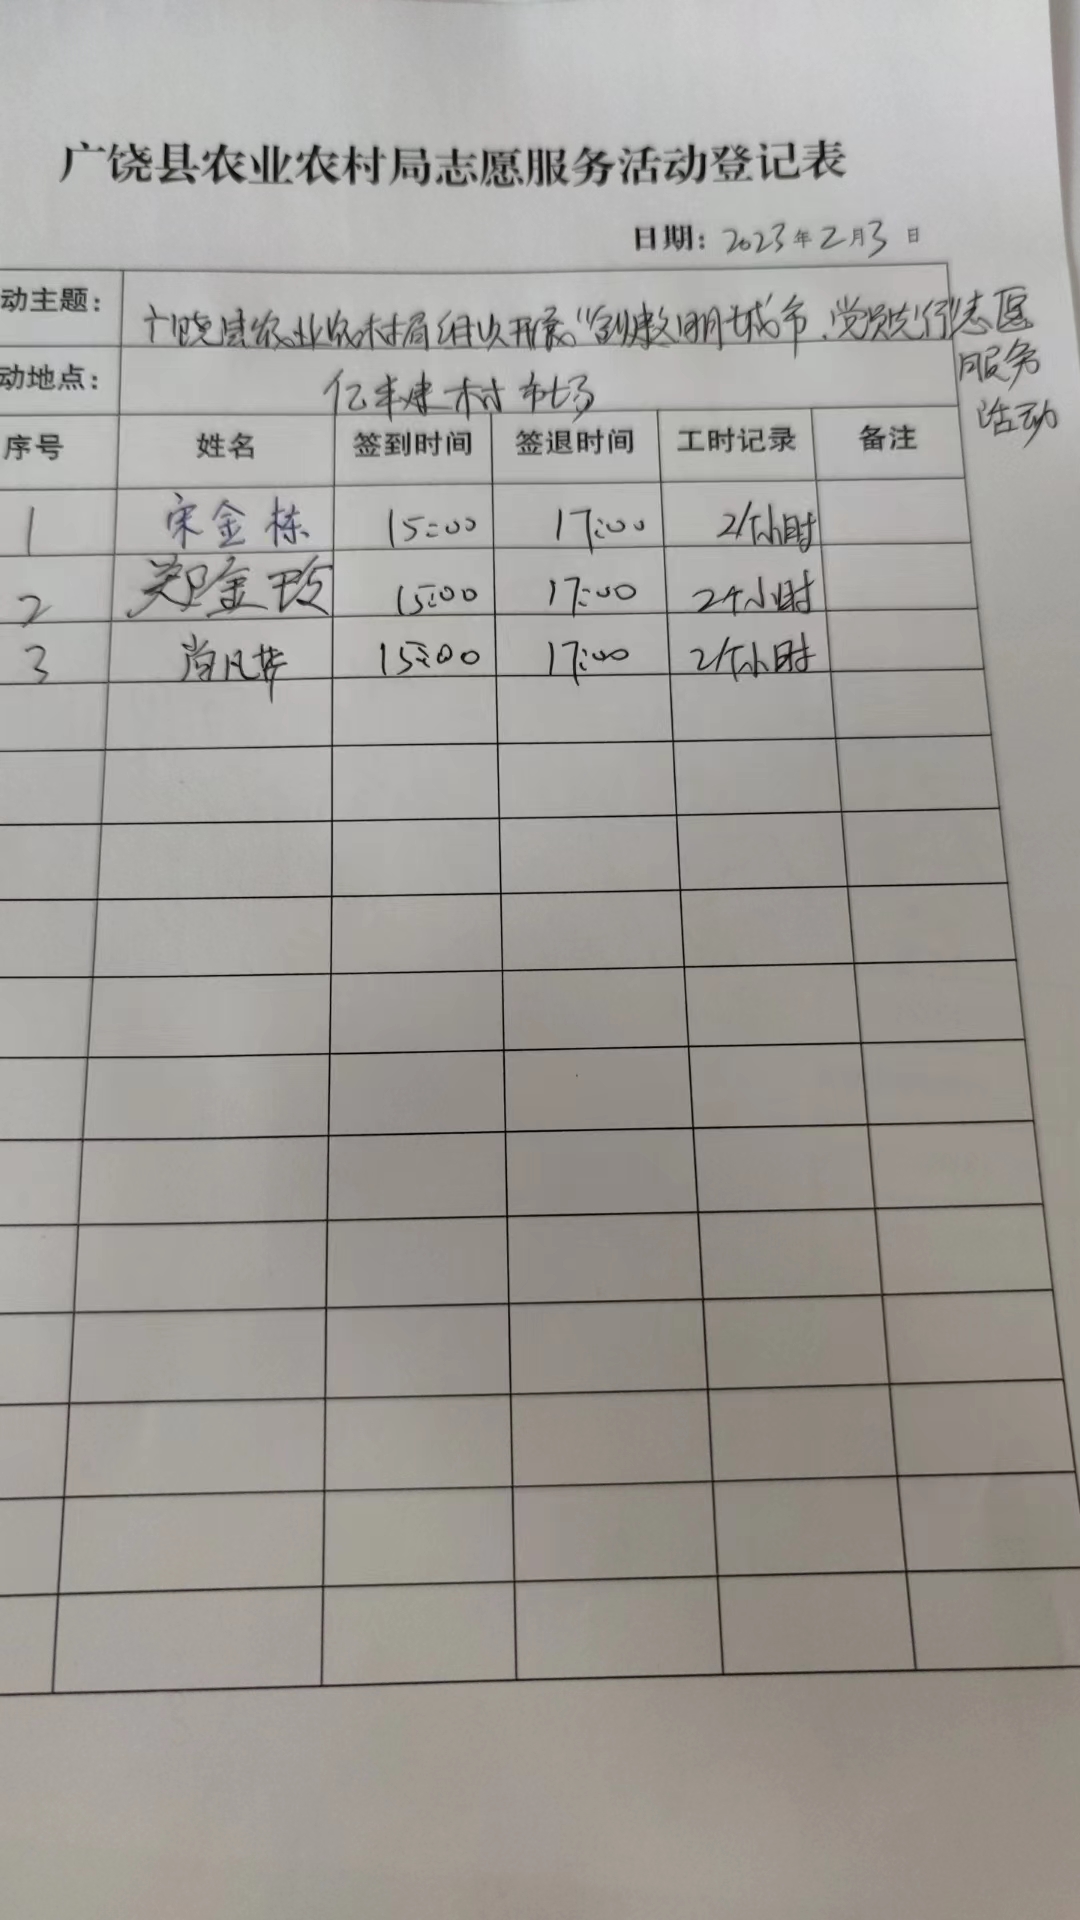 广饶县农业农村局志愿服务活动登记表
日期：2023年2月3日
动主题：
广饶县农业农村局组织开展“创建文明城市、党员先行”志愿
服务
活动
动地点：
亿丰建材市场
序号 姓名 签到时间 签退时间 工时记录 备注
1 宋金栋 15:00 17:00 2个小时
2 郑金玲 15:00 17:00 2个小时
3 尚凡 15:00 17:00 2个小时